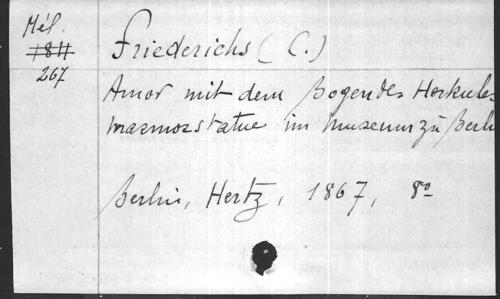 Mél.
1811
267
Friederichs (C.)
Amor mit dem Bogen des Herkules
marmorstatue im museum zu Berlin
Berlin, Hertz, 1867, 8º